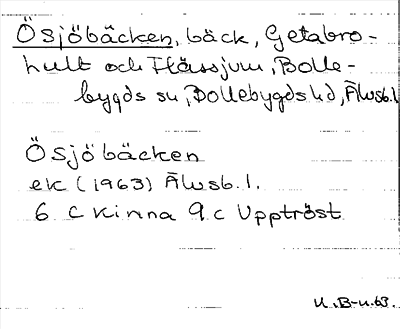 Ösjöbäcken, bäck, Getabro-
hult och Flässjum, Bolle-
bygds sn, Bollebygds hd, Älvsb.l.
Ösjöbäcken
ek (1963) Älvsb.l.
6 c Kinna 9 c Upptröst
U.B-n.63.